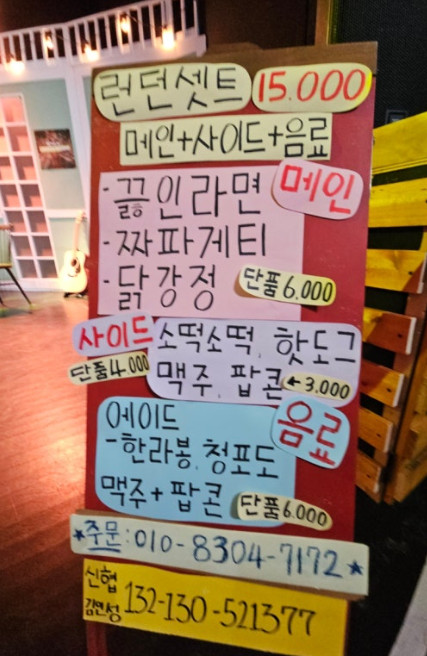 런던셋트 15.000
메인+사이드+음료
메인
-끓인라면
-짜파게티
-닭강정 단품 6.000
사이드 소떡소떡, 핫도그
단품4.000 맥주, 팝콘 ←3.000
에이드 음료
-한라봉, 청포도
맥주+팝콘 단품6.000
★주문:010-8304-7172★
신협 132-130-521377